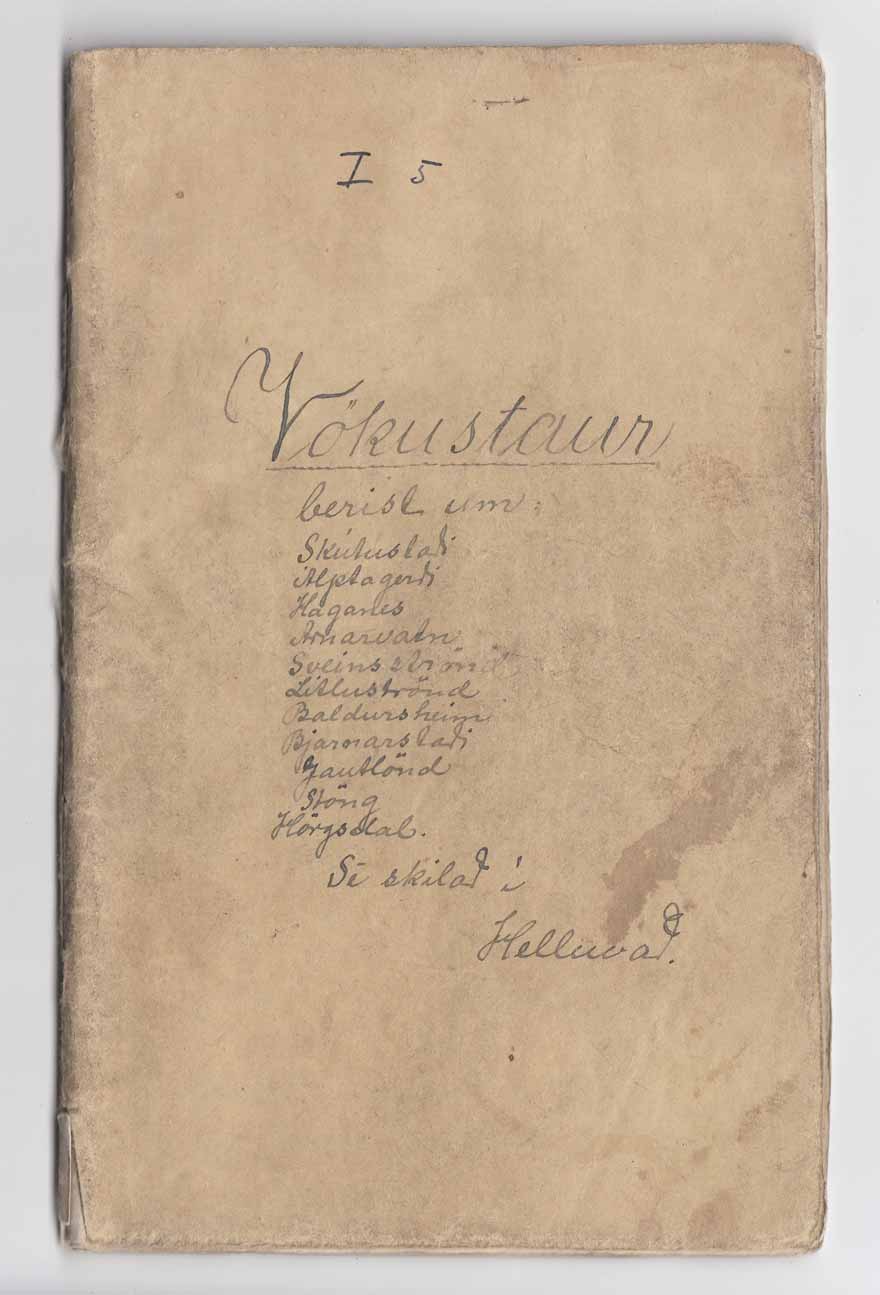 I 5
Vökustaur
berist um:
Skútustaði
Alptagerði
Haganes
Arnarvatn
Sveinsströnd
Litluströnd
Baldursheim
Bjarnarstaði
Gautlönd
Stöng
Hörgsdal.
Sé skilað í
Helluvað.